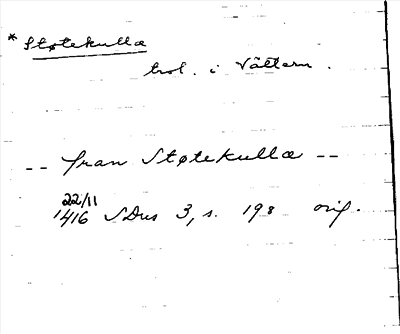 * Støtekulla
trol. i Vättern.
-- fran Støtekulla --
22/11
1416 SDns 3, s. 198 orig.